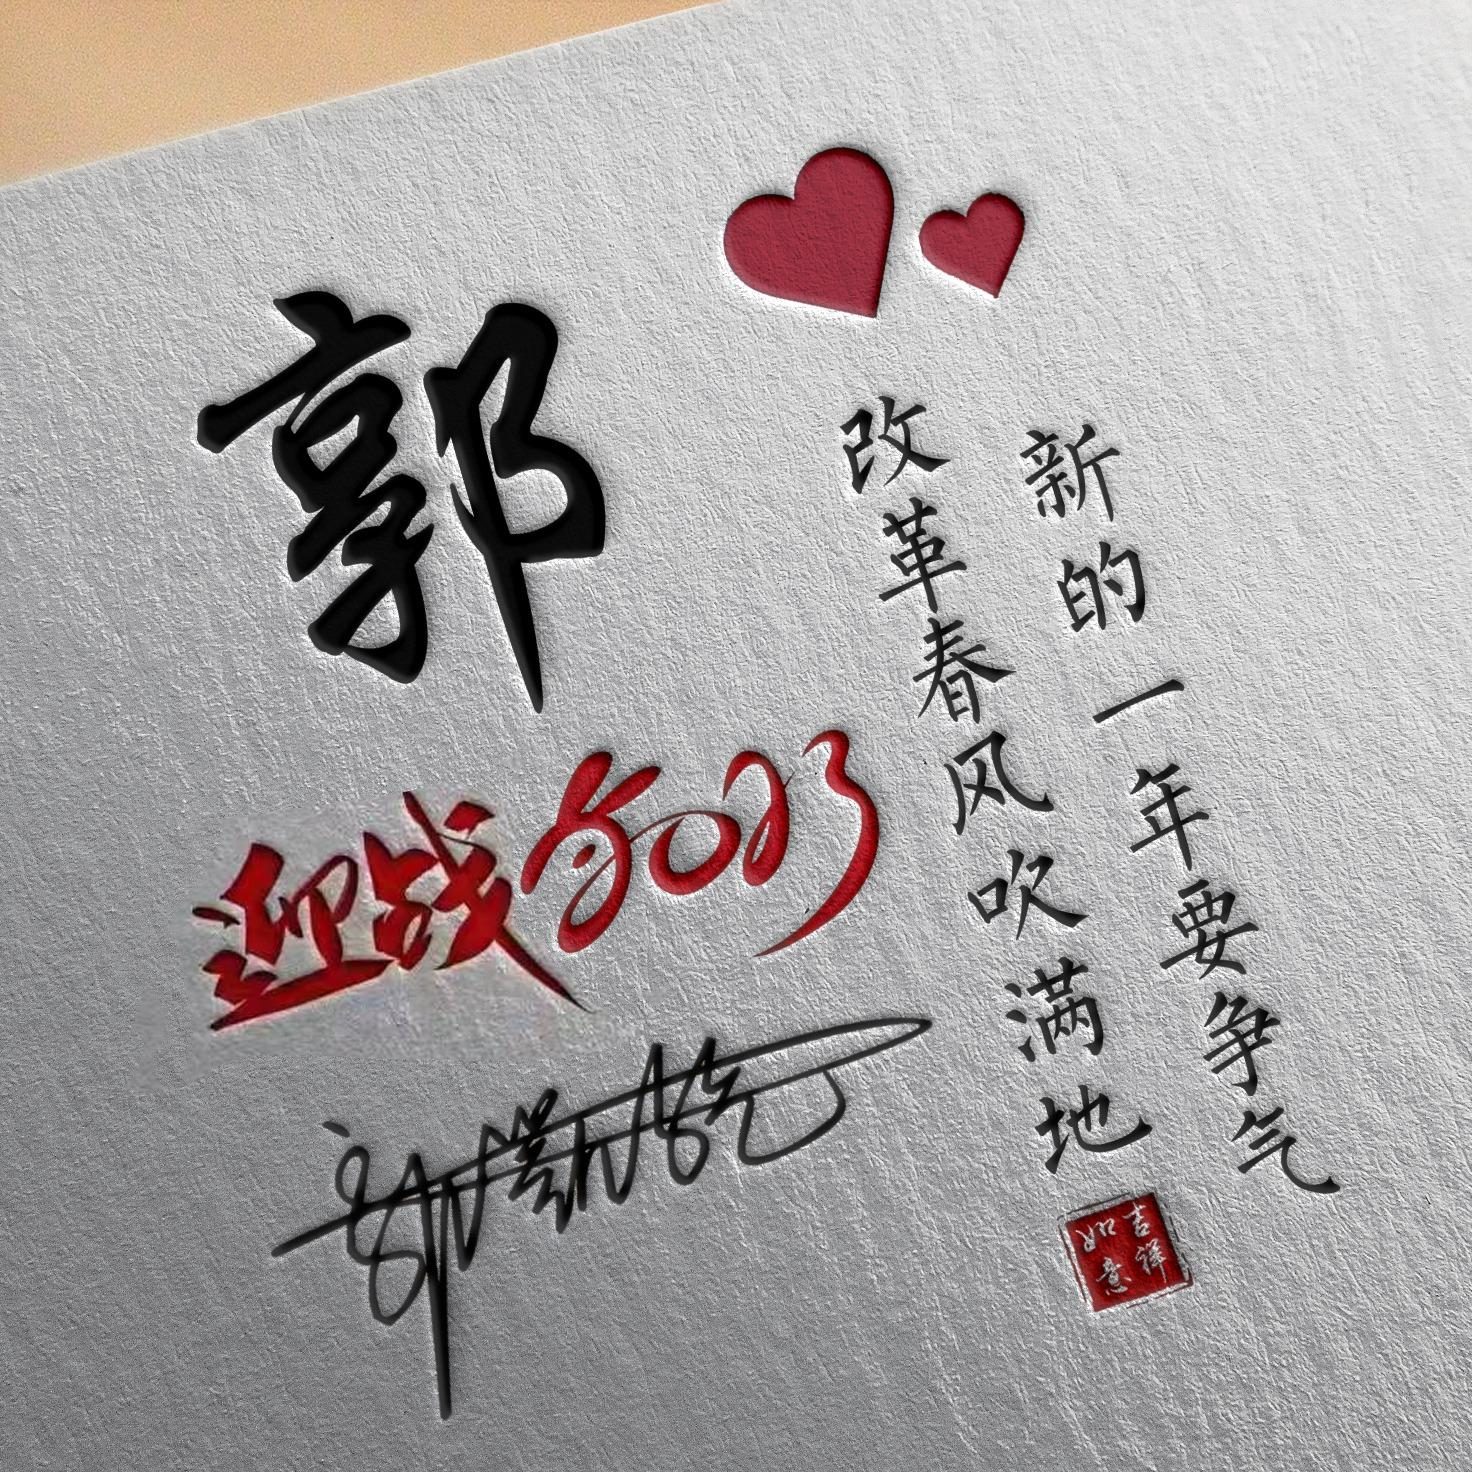 郭
迎战2023
新的一年要争气
改革春风吹满地
吉祥
如意